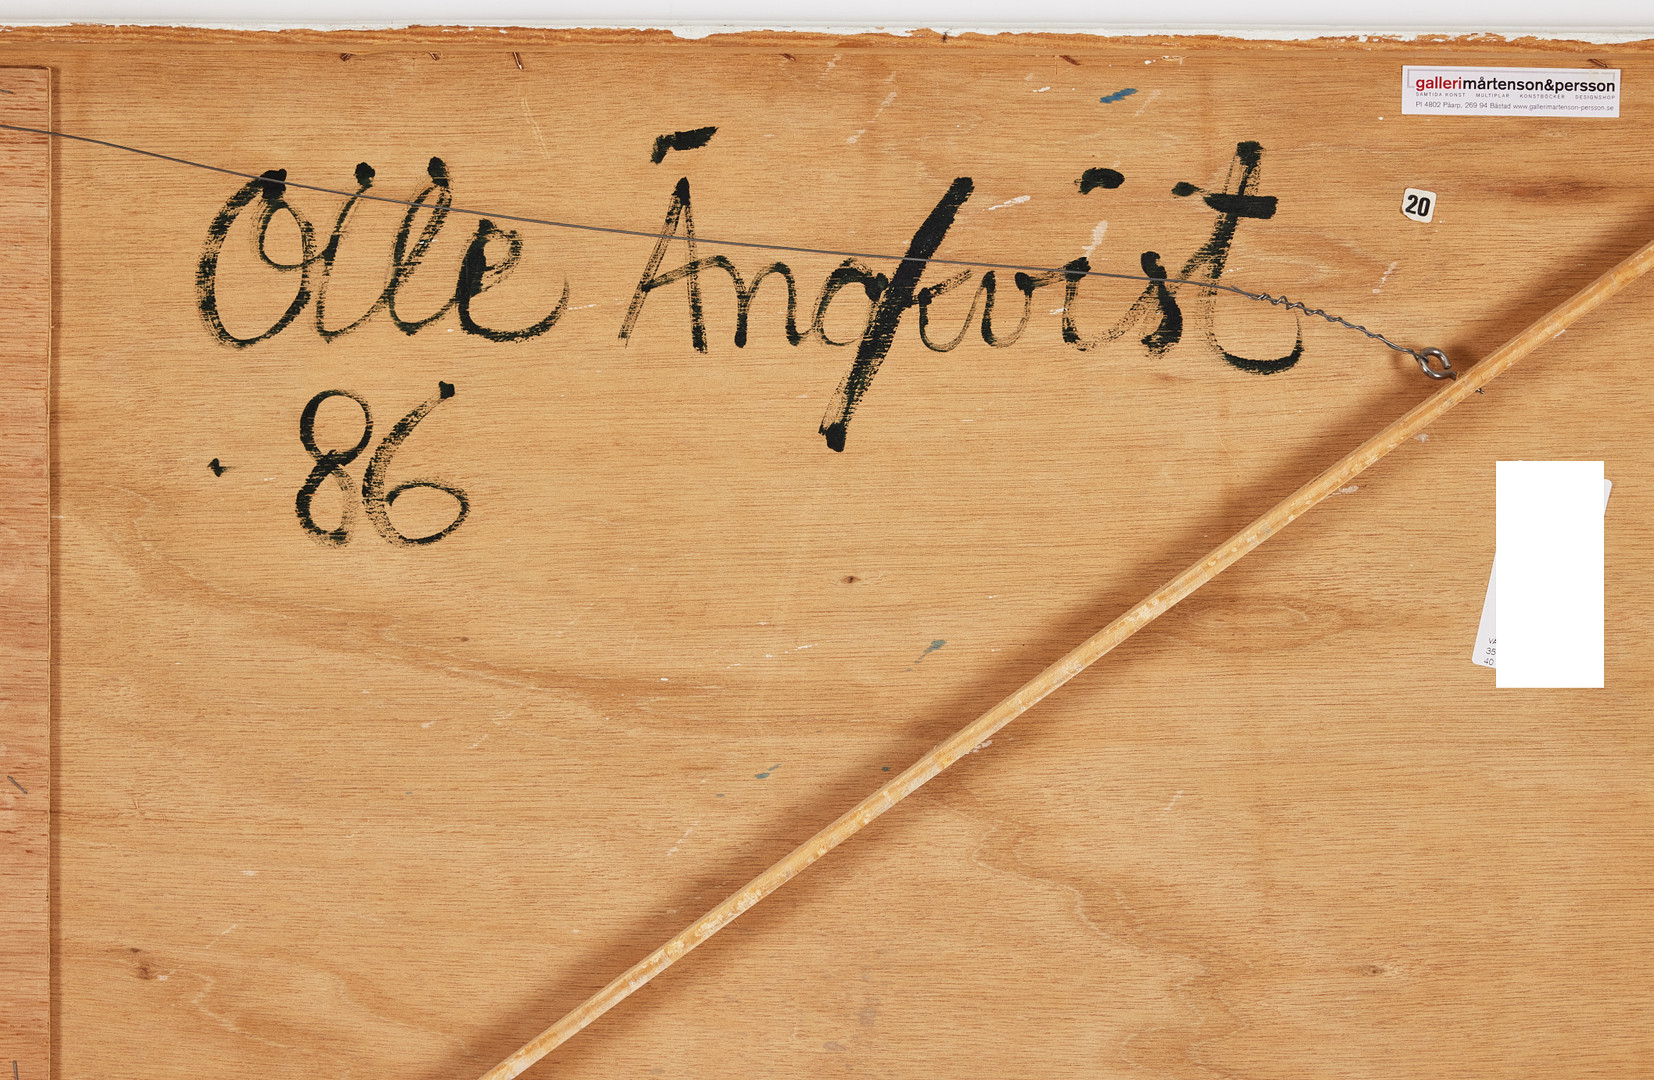 Olle Ängkvist
86
gallerimårtenson&persson
SAMTIDA KONST MULTIPLAR KONSTBÖCKER DESIGNSHOP
Pl 4802 Påarp, 269 94 Båstad www.gallerimartenson-persson.se
20
VA
35
40